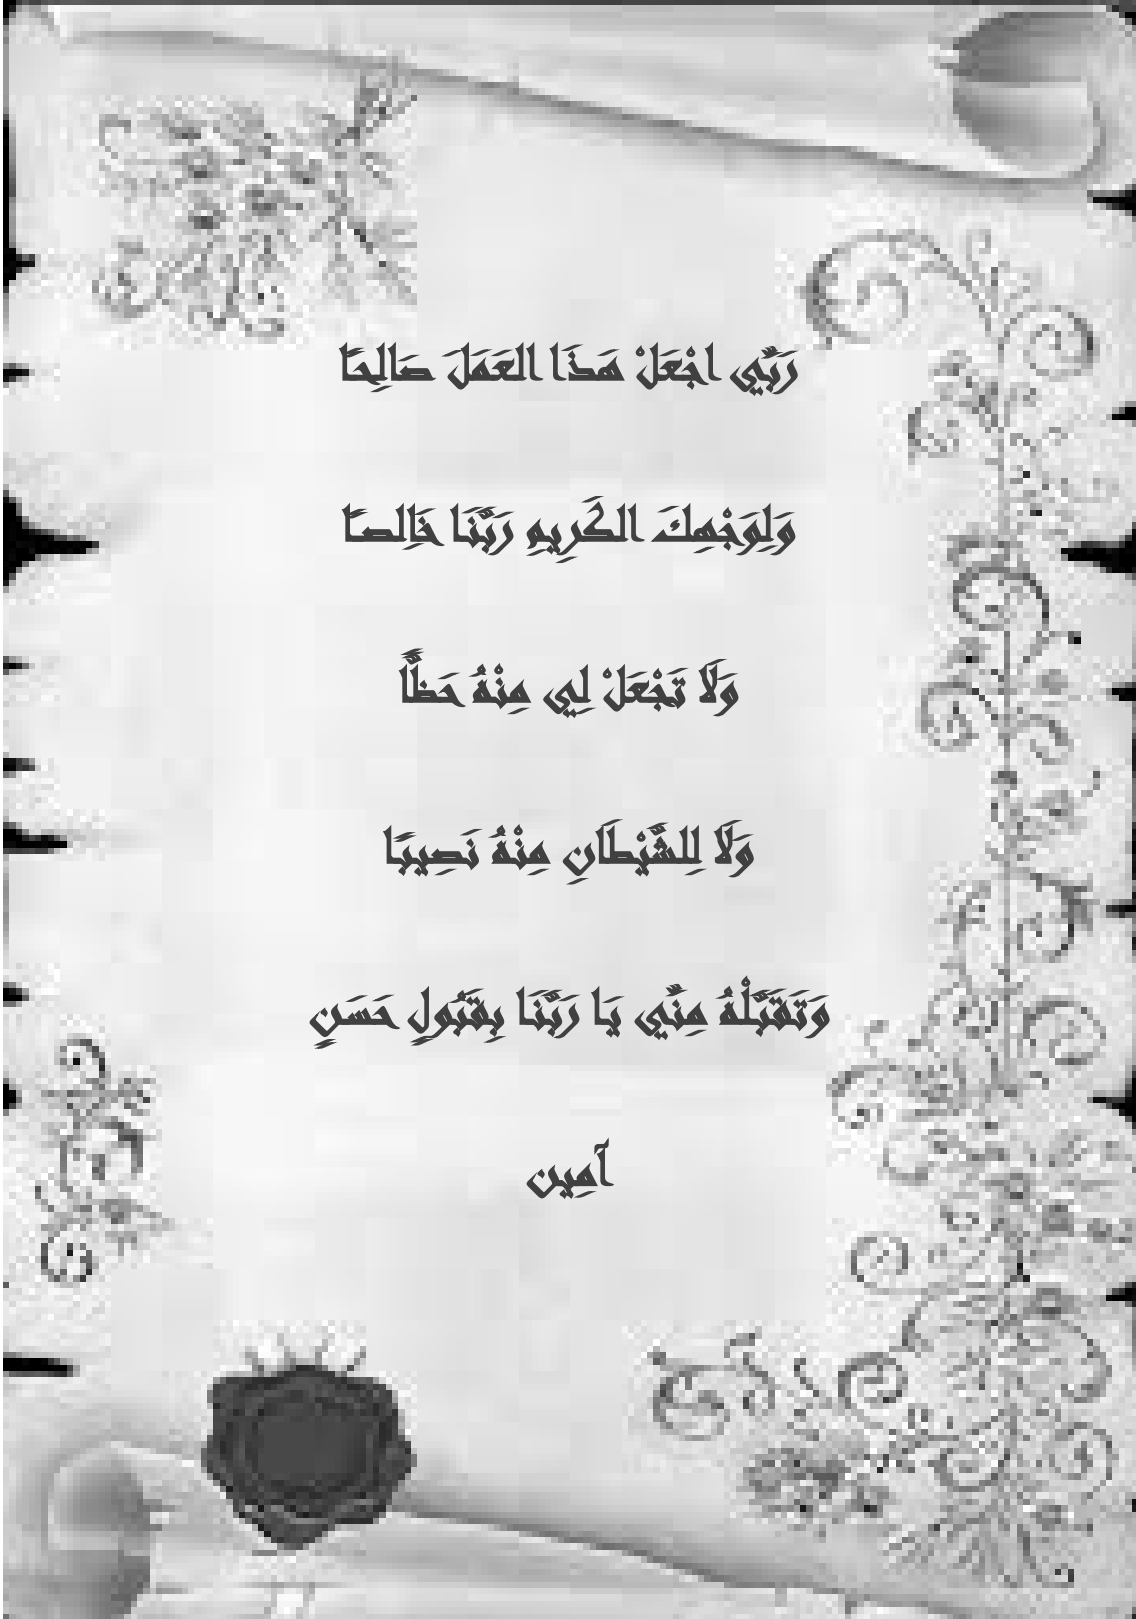 رَبِّي اجْعَلْ هَذَا العَمَلَ صَالِحًا
وَلِوَجْهِكَ الكَرِيمِ رَبَّنَا خَالِصًا
وَلَا تَجْعَلْ لِي مِنْهُ حَظًّا
وَلَا لِلشَّيْطَانِ مِنْهُ نَصِيبًا
وَتَقَبَّلْهُ مِنِّي يَا رَبَّنَا بِقَبُولٍ حَسَنٍ
آمِين